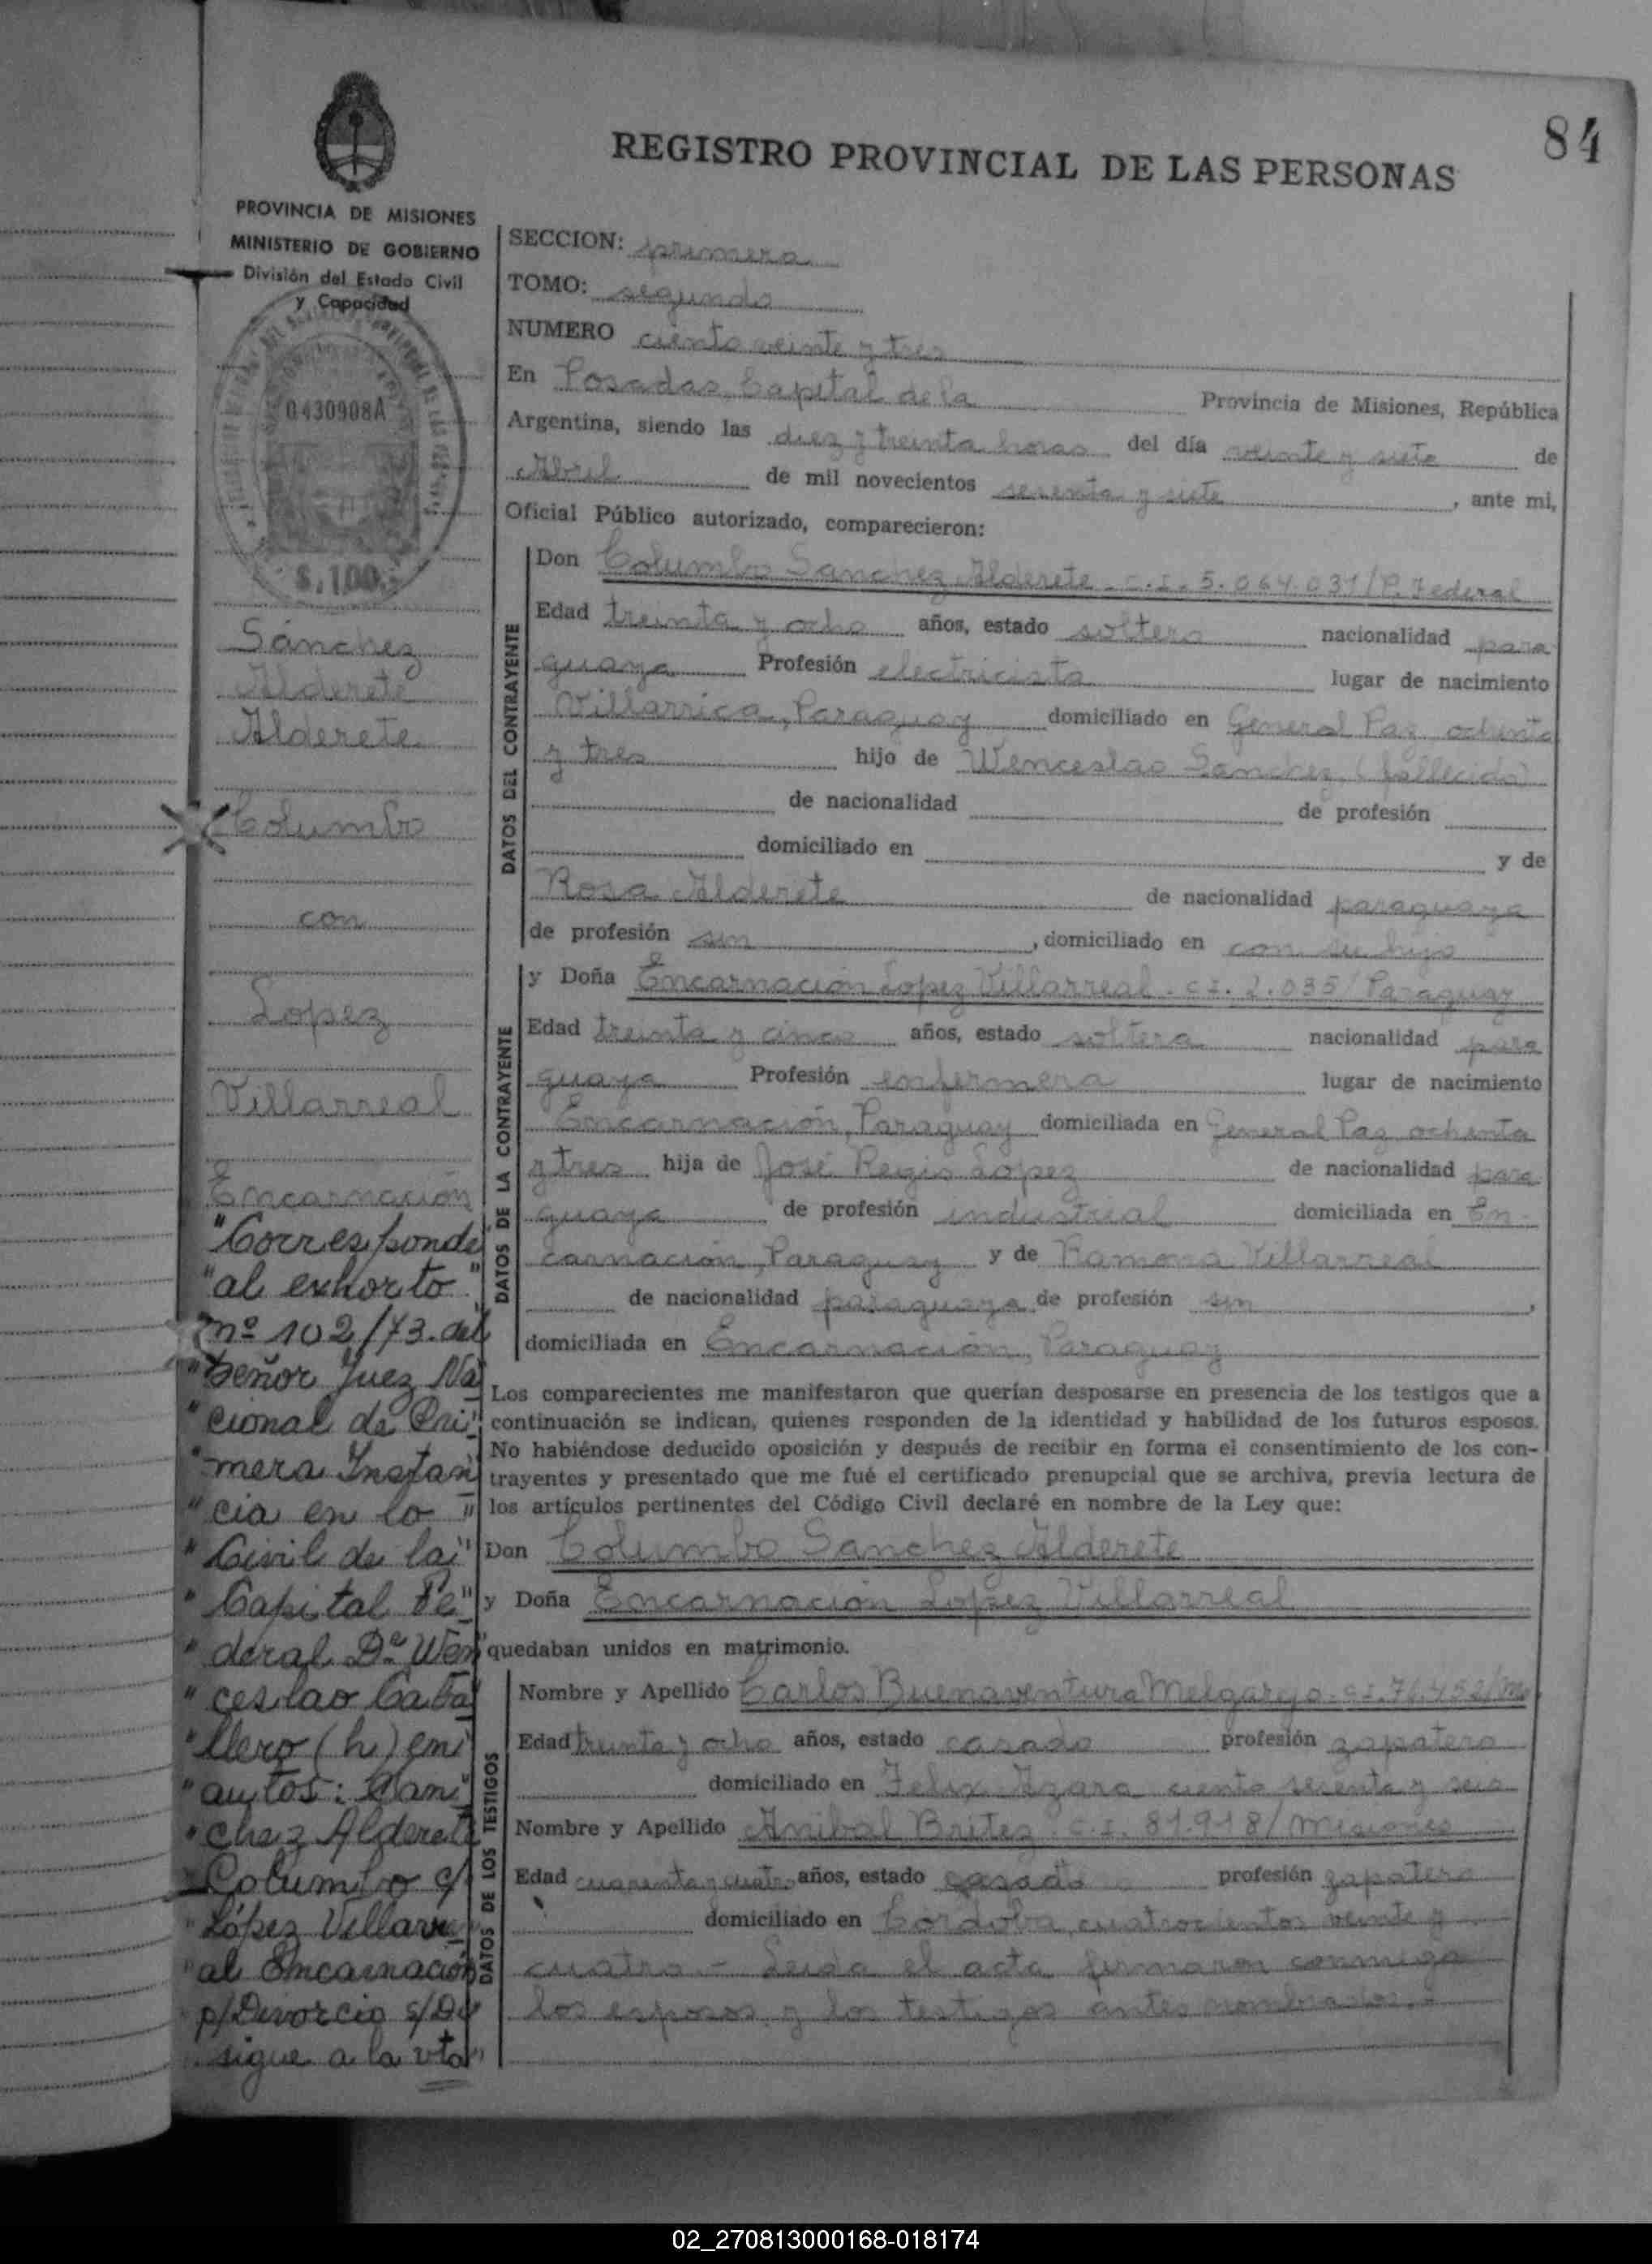 84
REGISTRO PROVINCIAL DE LAS PERSONAS
PROVINCIA DE MISIONES
MINISTERIO DE GOBIERNO
División del Estado Civil
y Capacidad
0430908A
$.100.-
Sánchez
Alderete
Alderete
Columbo
con
Lopez
Villarreal
Encarnación
"Corresponde
"al exhorto"
nº 102/73. del
"Señor Juez Na
"cional de Pri"
"mera Instan"
"cia en lo"
"Civil de la"
"Capital Fe"
"deral Dr. Wen"
"ceslao Caba"
"llero (h) en"
"autos: San"
"chez Alderete
Columbo c/
"López Villarre
"al Encarnación
p/Divorcio s/De
sigue a la vta"
SECCION: primera
TOMO: segundo
NUMERO ciento veinte y tres
En Posadas, Capital de la Provincia de Misiones, República
Argentina, siendo las diez y treinta horas del día veinte y siete de
Abril de mil novecientos sesenta y siete, ante mi,
Oficial Público autorizado, comparecieron:
DATOS DEL CONTRAYENTE
Don Columbo Sanchez Alderete - C.I. 5.064.031/P. Federal
Edad treinta y ocho años, estado soltero nacionalidad para
guaya Profesión electricista lugar de nacimiento
Villarrica, Paraguay domiciliado en General Paz ochenta
y tres hijo de Wenceslao Sanchez, (fallecido)
de nacionalidad de profesión
domiciliado en y de
Rosa Alderete de nacionalidad paraguaya
de profesión sin, domiciliado en con su hijo
DATOS DE LA CONTRAYENTE
y Doña Encarnación Lopez Villarreal - C.I. 2.035/Paraguay
Edad treinta y cinco años, estado soltera nacionalidad para
guaya Profesión enfermera lugar de nacimiento
Encarnación, Paraguay domiciliada en General Paz ochenta
y tres hija de José Regis Lopez de nacionalidad para
guaya de profesión industrial domiciliada en En-
carnación, Paraguay y de Ramona Villarreal
de nacionalidad paraguaya de profesión sin,
domiciliada en Encarnación, Paraguay
Los comparecientes me manifestaron que querían desposarse en presencia de los testigos que a
continuación se indican, quienes responden de la identidad y habilidad de los futuros esposos.
No habiéndose deducido oposición y después de recibir en forma el consentimiento de los con-
trayentes y presentado que me fué el certificado prenupcial que se archiva, previa lectura de
los artículos pertinentes del Código Civil declaré en nombre de la Ley que:
Don Columbo Sanchez Alderete
y Doña Encarnación Lopez Villarreal
quedaban unidos en matrimonio.
DATOS DE LOS TESTIGOS
Nombre y Apellido Carlos Buenaventura Melgarejo - C.I. 76.452/Ms
Edad treinta y ocho años, estado casado profesión zapatero
domiciliado en Felix Azara ciento sesenta y seis
Nombre y Apellido Anibal Britez - C.I. 81.918/Misiones
Edad cuarenta y cuatro años, estado casado profesión zapatero
domiciliado en Cordoba cuatrocientos veinte y
cuatro - Leida el acta firmaron conmigo
los esposos y los testigos antes nombrados.-
02_270813000168-018174